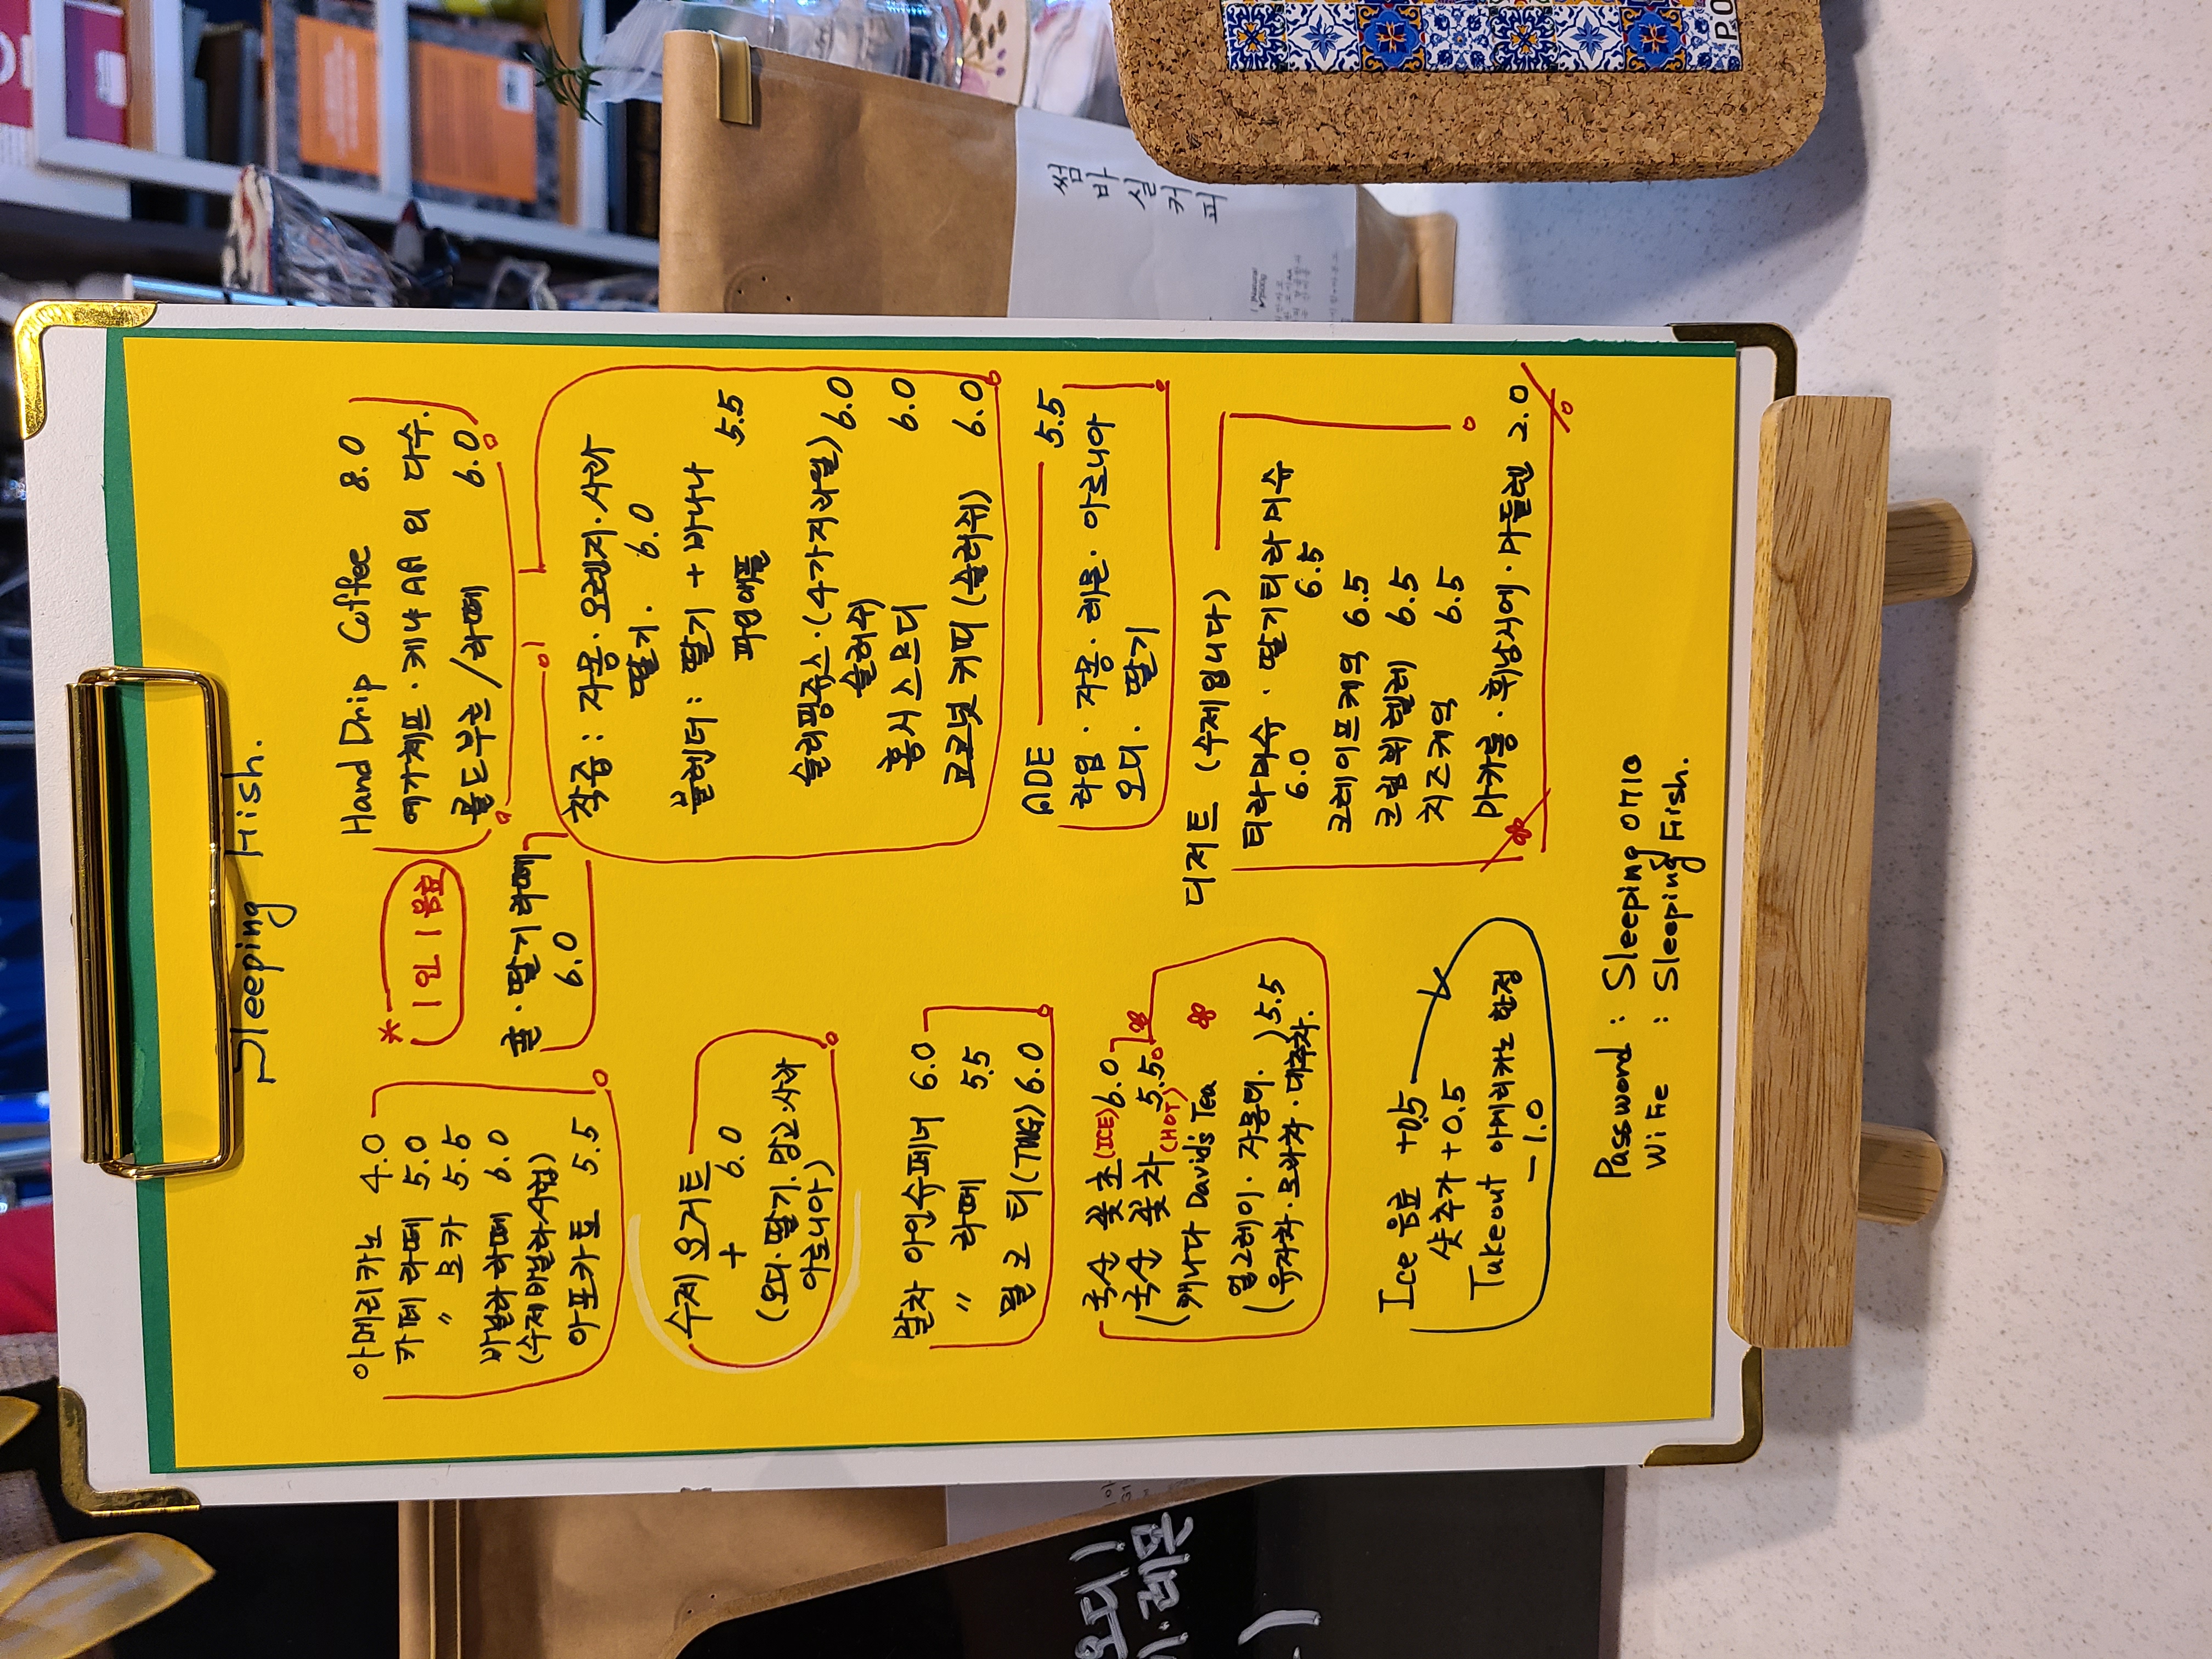 Sleeping Fish.
* 1인 1음료
아메리카노 4.0
카페라떼 5.0
〃 모카 5.5
바닐라라떼 6.0
(수제바닐라시럽)
아포카토 5.5
콜·딸기라떼
6.0
수제요거트
+ 6.0
(오디·딸기·망고·사과
아로니아)
말차 아인슈페너 6.0
〃 라떼 5.5
밀크티(TWG) 6.0
국산 꽃초(ICE) 6.0
(국산 꽃차(HOT) 5.5
(캐나다 Davids Tea
얼그레이·자몽티.) 5.5
(유자차·모과차·대추차.
Ice 음료 +0.5
샷추가 +0.5
Takeout 아메리카노 한정
-1.0
Hand Drip Coffee 8.0
예가체프·케냐AA 외 다수.
콜드부르/라떼 6.0
착즙: 자몽·오렌지·사과
딸기. 6.0
블렌더: 딸기+바나나
파인애플 5.5
슬리핑쥬스·(4가지과일) 6.0
슬러쉬
홍시스무디 6.0
코코넛 커피(슬러쉬) 6.0
ADE 5.5
라임·자몽·레몬·아로니아
오디·딸기
디저트 (수제입니다)
티라미슈·딸기티라미슈
6.0 6.5
크레이프케익 6.5
크림뷔렐레 6.5
치즈케익 6.5
마카롱·휘낭시에·마들렌 2.0
Password : Sleeping 0710
WiFe : Sleeping Fish.
썸
바
실
커
피
PO
오디)
레몬